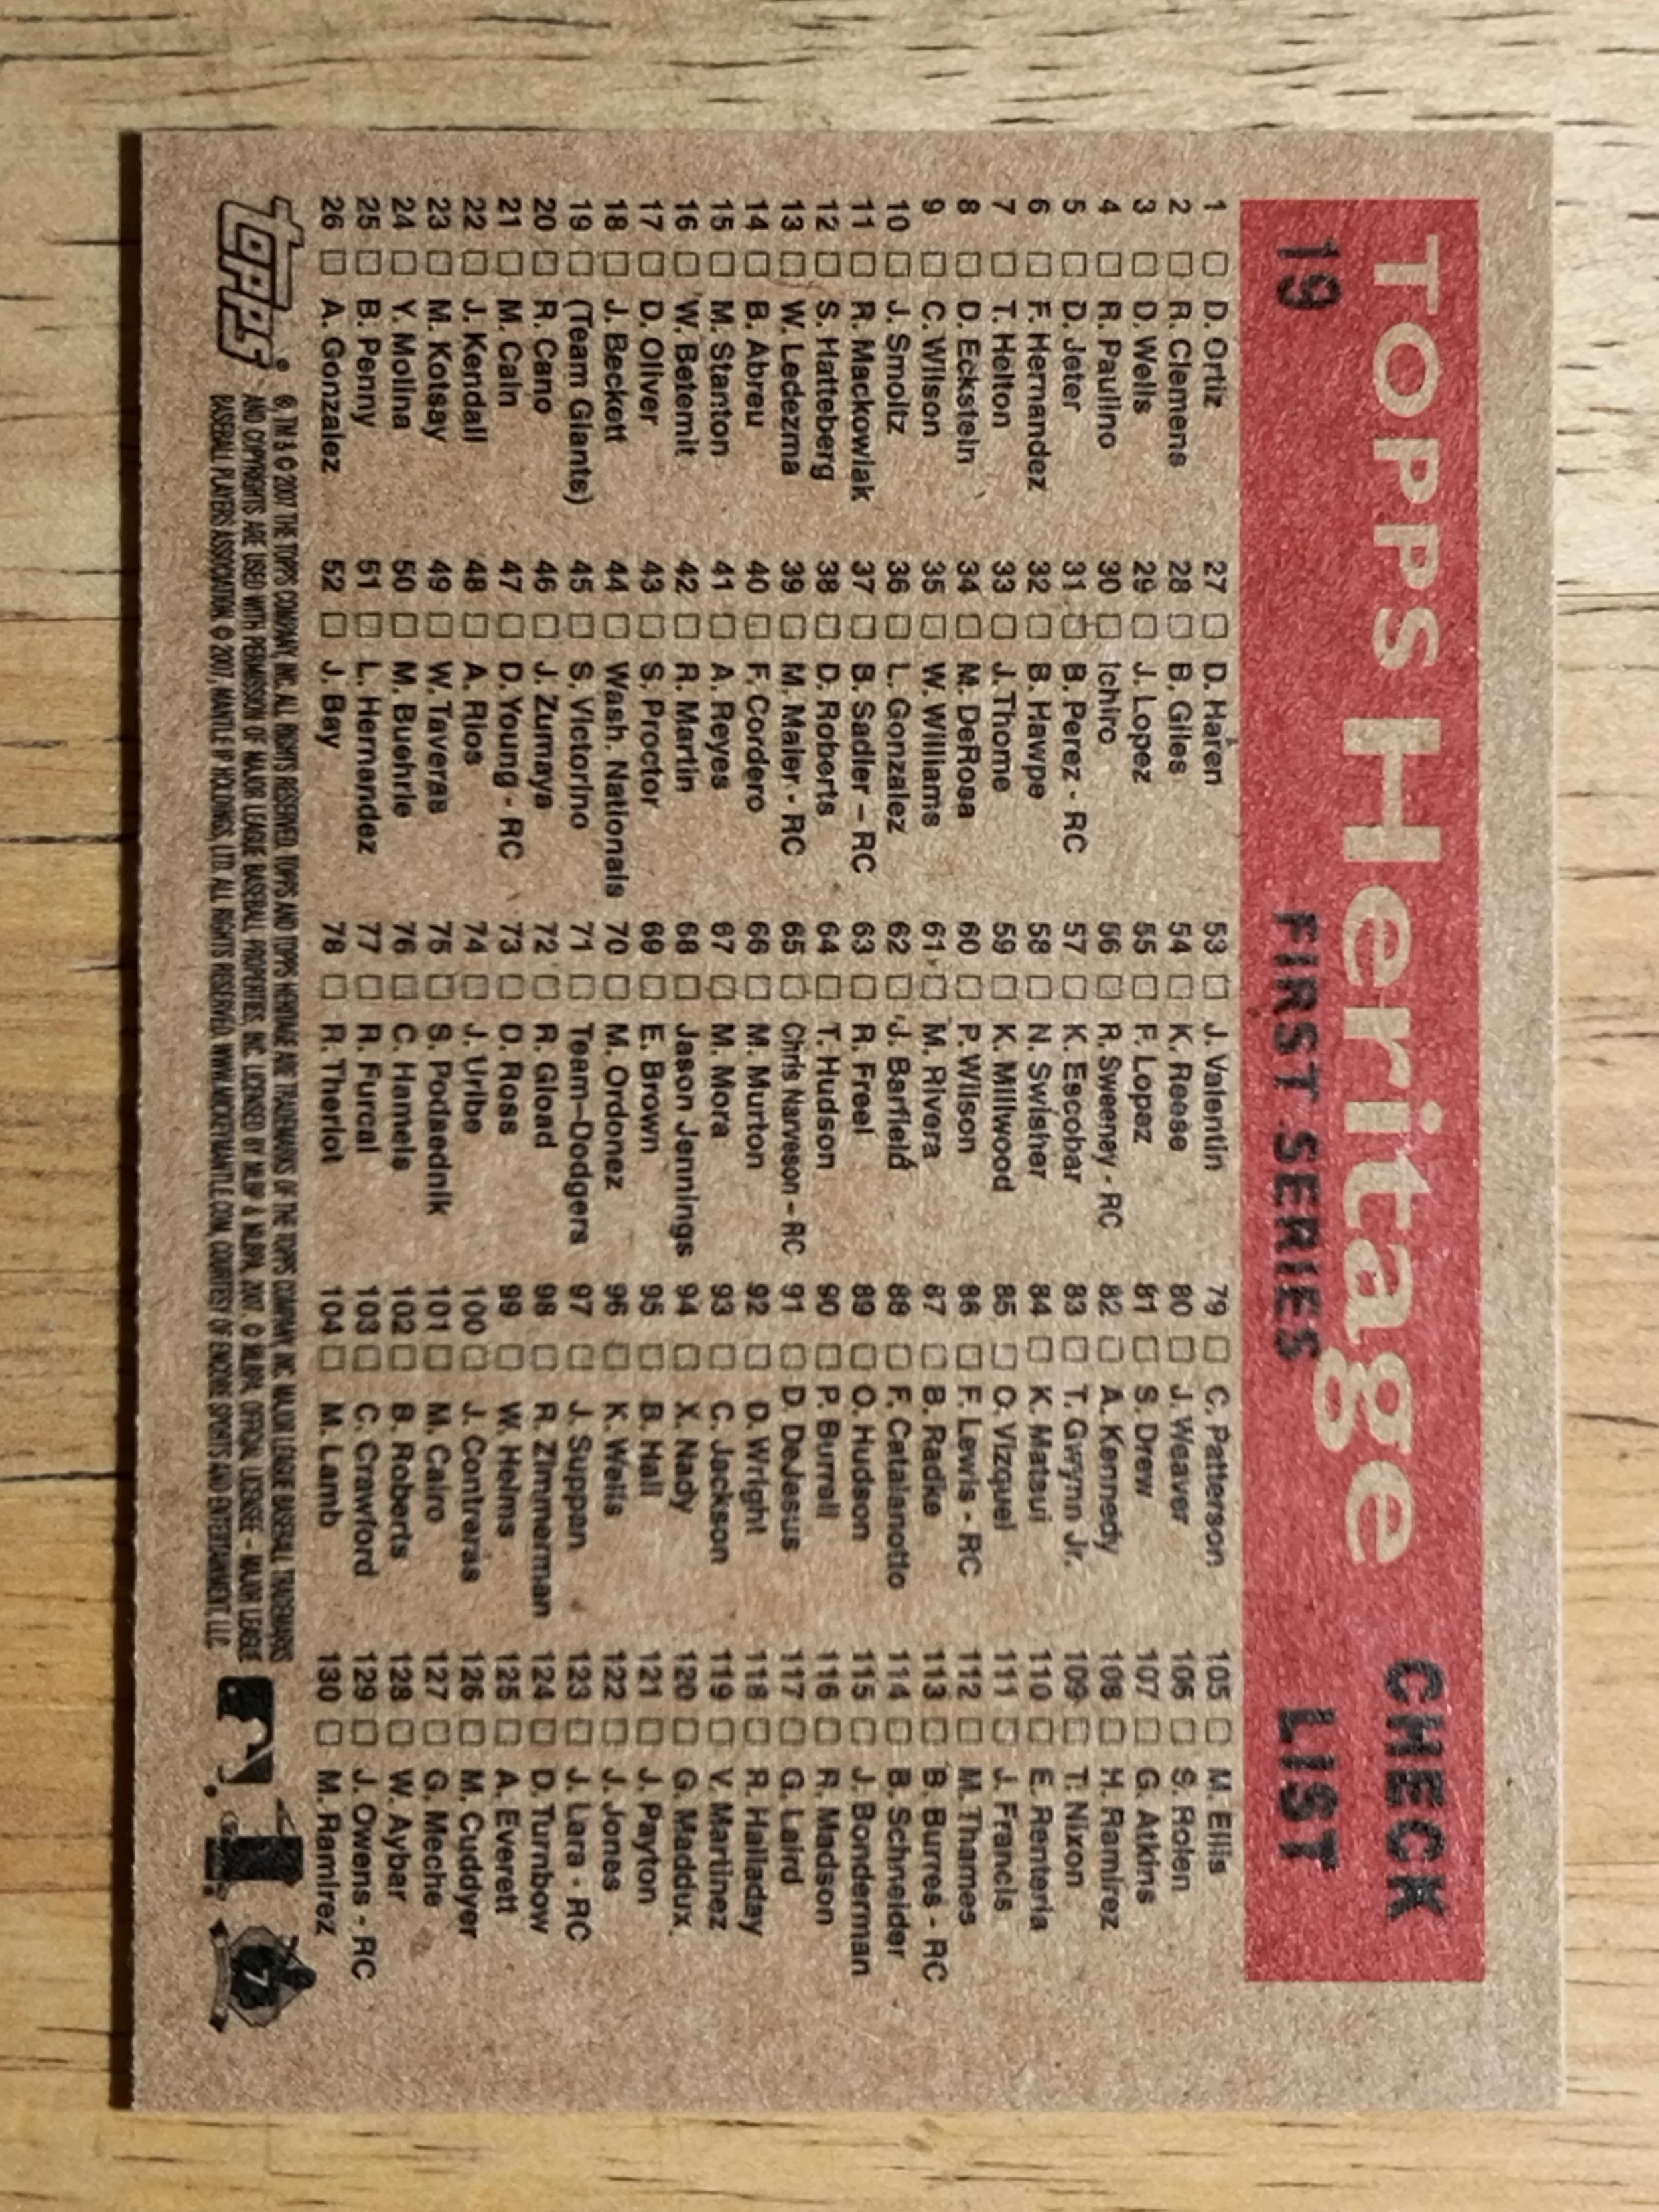 TOPPS Heritage CHECK
19 FIRST SERIES LIST
1 D. Ortiz
2 R. Clemens
3 D. Wells
4 R. Paulino
5 D. Jeter
6 F. Hernandez
7 T. Helton
8 D. Eckstein
9 C. Wilson
10 J. Smoltz
11 R. Mackowiak
12 S. Hatteberg
13 W. Ledezma
14 B. Abreu
15 M. Stanton
16 W. Betemit
17 D. Oliver
18 J. Beckett
19 (Team Giants)
20 R. Cano
21 M. Cain
22 J. Kendall
23 M. Kotsay
24 Y. Molina
25 B. Penny
26 A. Gonzalez
27 D. Haren
28 B. Giles
29 J. Lopez
30 Ichiro
31 B. Perez - RC
32 B. Hawpe
33 J. Thome
34 M. DeRosa
35 W. Williams
36 L. Gonzalez
37 B. Sadler – RC
38 D. Roberts
39 M. Maier - RC
40 F. Cordero
41 A. Reyes
42 R. Martin
43 S. Proctor
44 Wash. Nationals
45 S. Victorino
46 J. Zumaya
47 D. Young - RC
48 A. Rios
49 W. Taveras
50 M. Buehrle
51 L. Hernandez
52 J. Bay
53 J. Valentin
54 K. Reese
55 F. Lopez
56 R. Sweeney - RC
57 K. Escobar
58 N. Swisher
59 K. Millwood
60 P. Wilson
61 M. Rivera
62 J. Barfield
63 R. Freel
64 T. Hudson
65 Chris Narveson – RC
66 M. Murton
67 M. Mora
68 Jason Jennings
69 E. Brown
70 M. Ordonez
71 Team–Dodgers
72 R. Gload
73 D. Ross
74 J. Uribe
75 S. Podsednik
76 C. Hamels
77 R. Furcal
78 R. Theriot
79 C. Patterson
80 J. Weaver
81 S. Drew
82 A. Kennedy
83 T. Gwynn Jr.
84 K. Matsui
85 O. Vizquel
86 F. Lewis - RC
87 B. Radke
88 F. Catalanotto
89 O. Hudson
90 P. Burrell
91 D. DeJesus
92 D. Wright
93 C. Jackson
94 X. Nady
95 B. Hall
96 K. Wells
97 J. Suppan
98 R. Zimmerman
99 W. Helms
100 J. Contreras
101 M. Cairo
102 B. Roberts
103 C. Crawford
104 M. Lamb
105 M. Ellis
106 S. Rolen
107 G. Atkins
108 H. Ramirez
109 T. Nixon
110 E. Renteria
111 J. Francis
112 M. Thames
113 B. Burres - RC
114 B. Schneider
115 J. Bonderman
116 R. Madson
117 G. Laird
118 R. Halladay
119 V. Martinez
120 G. Maddux
121 J. Payton
122 J. Jones
123 J. Lara - RC
124 D. Turnbow
125 A. Everett
126 M. Cuddyer
127 G. Meche
128 W. Aybar
129 J. Owens - RC
130 M. Ramirez
Topps®
®, TM & © 2007 THE TOPPS COMPANY, INC. ALL RIGHTS RESERVED. TOPPS AND TOPPS HERITAGE ARE TRADEMARKS OF THE TOPPS COMPANY, INC. MAJOR LEAGUE BASEBALL TRADEMARKS
AND COPYRIGHTS ARE USED WITH PERMISSION OF MAJOR LEAGUE BASEBALL PROPERTIES, INC. LICENSED BY MLBP & MLBPA, 2007. © MLBPA, OFFICIAL LICENSEE - MAJOR LEAGUE
BASEBALL PLAYERS ASSOCIATION. © 2007, MANTLE IP HOLDINGS, LTD. ALL RIGHTS RESERVED. WWW.MICKEYMANTLE.COM, COURTESY OF ENCORE SPORTS AND ENTERTAINMENT, LLC
7